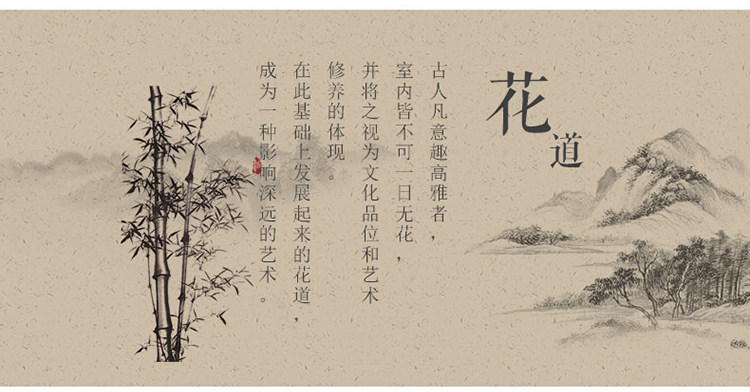 花道
古人凡意趣高雅者，
室内皆不可一日无花，
并将之视为文化品位和艺术
修养的体现。
在此基础上发展起来的花道，
成为一种影响深远的艺术。